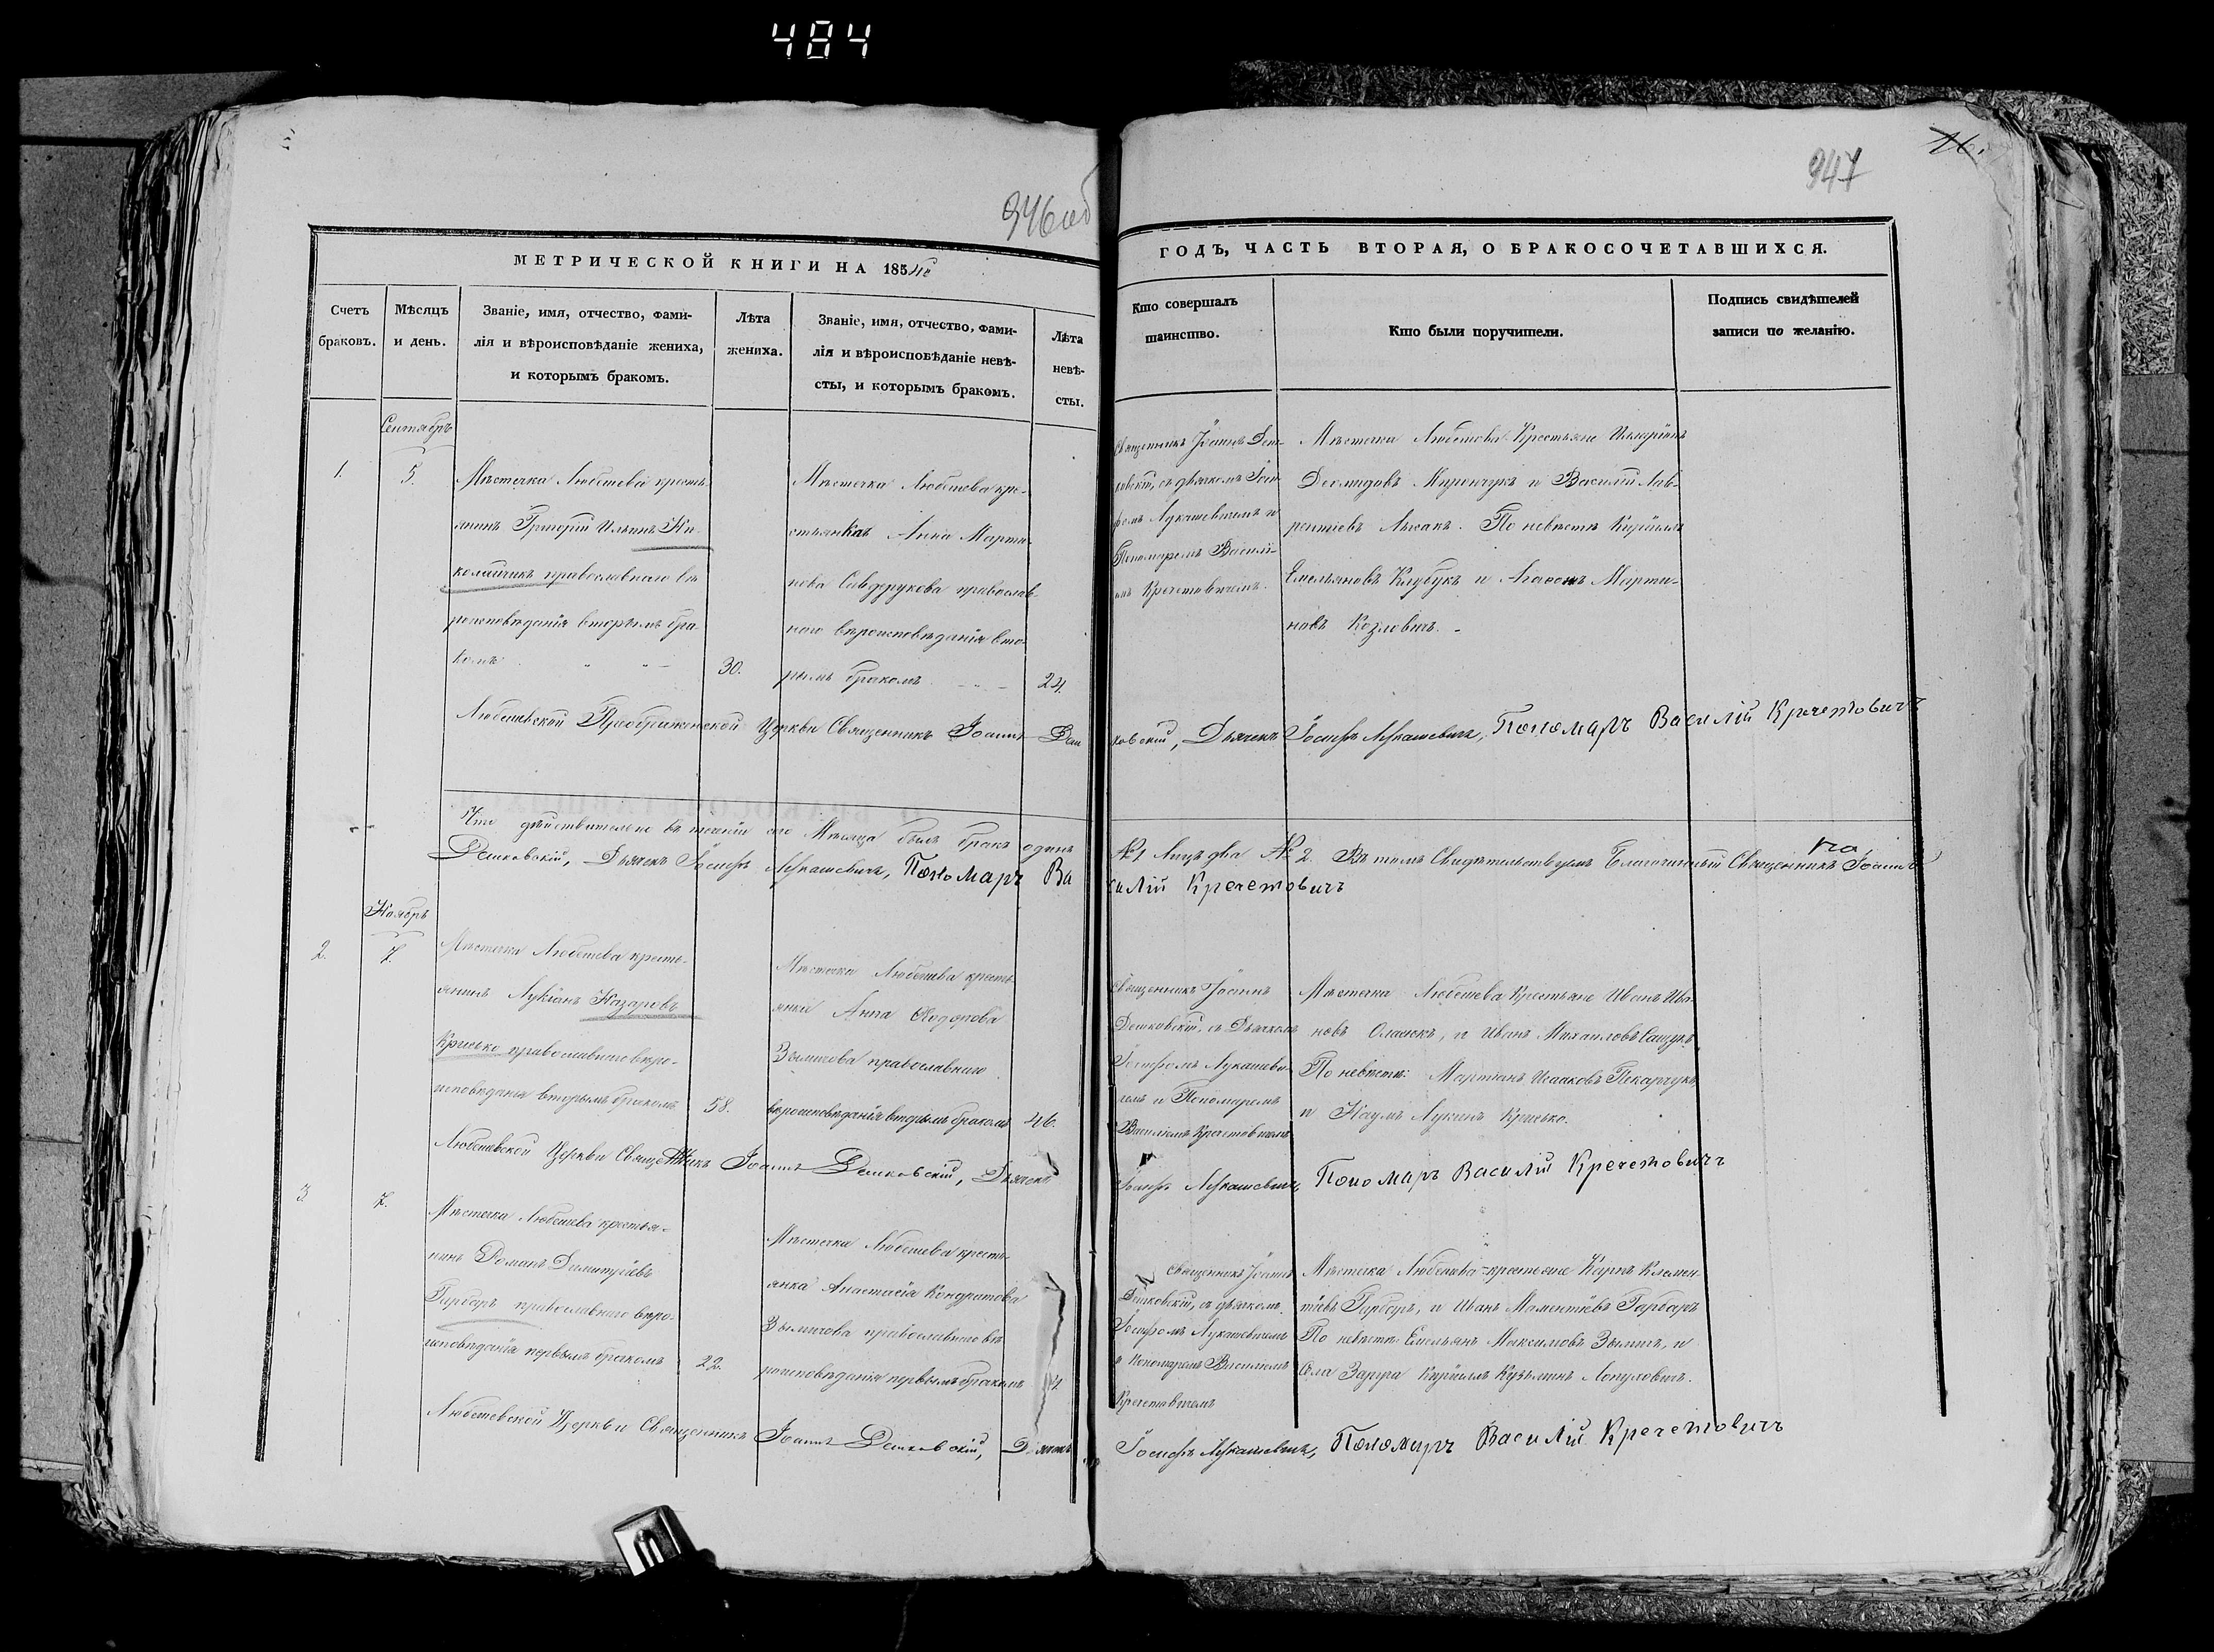 484
946об
947
16.
МЕТРИЧЕСКОЙ КНИГИ НА 1854й
ГОДЪ, ЧАСТЬ ВТОРАЯ, О БРАКОСОЧЕТАВШИХСЯ.
Счетъ
браковъ.
Мѣсяцъ
и день.
Званіе, имя, отчество, фами-
лія и вѣроисповѣданіе жениха,
и которымъ бракомъ.
Лѣта
жениха.
Званіе, имя, отчество, фами-
лія и вѣроисповѣданіе невѣ-
сты, и которымъ бракомъ.
Лѣта
невѣ-
сты.
Кто совершалъ
таинство.
Кто были поручители.
Подпись свидѣтелей
записи по желанію.
Сентябрь
1.
5.
Мѣстечка Любешева кресть-
янинъ Григорій Ильинъ Ни-
колайчикъ православнаго вѣ
роисповѣданія вторымъ бра-
комъ
30.
Мѣстечка Любешева кре-
стьянка Анна Марти-
нова православ-
наго вѣроисповѣданія вто-
рымъ бракомъ
24.
Священникъ Іоаннъ Деш-
ковскій, съ дьячкомъ Іоси-
фомъ Лукашевичемъ и
Пономаремъ Васили-
емъ Кречетовичемъ.
Мѣстечка Любешова Крестьяне Иларіонъ
Деомидовъ Мирончукъ и Василій Лав-
рентіевъ По невѣстѣ Кириллъ
Емельяновъ Клубукъ и Марти-
новъ Козловичъ.
Любешевской Преображенской Церкви Священникъ Іоаннъ Деш
ковскій, Дьячекъ Іосифъ Лукашевичъ, Пономаръ Василій Кречетовичъ
Что дѣйствительно въ теченіи сего Мѣсяца былъ бракъ одинъ
№1 Лицъ два №2. Въ томъ Свидѣтельствуемъ Благочинный Священникъ Іоаннъ
Дешковскій, Дьячекъ Іосифъ Лукашевичъ, Пономаръ Ва
силій Кречетовичъ
Ноябрь
2.
7.
Мѣстечка Любешева кресть-
янинъ Лукіанъ Назаровъ
Кресько православнаго вѣро-
исповѣданія вторымъ бракомъ
58.
Мѣстечка Любешева кресть-
янка Анна Ѳедорова
Зымичова православнаго
вѣроисповѣданія вторымъ бракомъ
46.
Священникъ Іоаннъ
Дешковскій, съ Дьячкомъ
Іосифомъ Лукашеви-
чемъ и Пономаремъ
Василіемъ Кречетовичемъ
Мѣстечка Любешева Крестьяне Иванъ Ива-
новъ и Иванъ Михаиловъ
По невѣстѣ: Мартинъ Исааковъ Пекарчукъ
и Наумъ Лукинъ Кресько.
Любешевской Церкви Священникъ Іоаннъ Дешковскій, Дьячекъ
Іосифъ Лукашевичъ, Пономаръ Василій Кречетовичъ
3
7.
Мѣстечка Любешева крестья-
нинъ Романъ Димитріевъ
Гарбаръ православнаго вѣро-
исповѣданія первымъ бракомъ
22.
Мѣстечка Любешева кресть-
янка Анастасія Кондратова
Зымичова православнаго вѣ
роисповѣданія первымъ бракомъ
Священникъ Іоаннъ
Дешковскій, съ дьячкомъ
Іосифомъ Лукашевичемъ
и Пономаремъ Василіемъ
Кречетовичемъ
Мѣстечка Любешова крестьяне Карпъ Климен-
тіевъ Гарбаръ, и Иванъ Гарбаръ
По невѣстѣ Емельянъ Максимовъ Зымичъ, и
Села Кириллъ Кузьминъ
Любешевской Церкви Священникъ Іоаннъ Дешковскій, Дьячекъ
Іосифъ Лукашевичъ, Пономаръ Василій Кречетовичъ